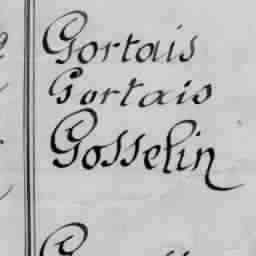 Gortais
Gortais
Gosselin